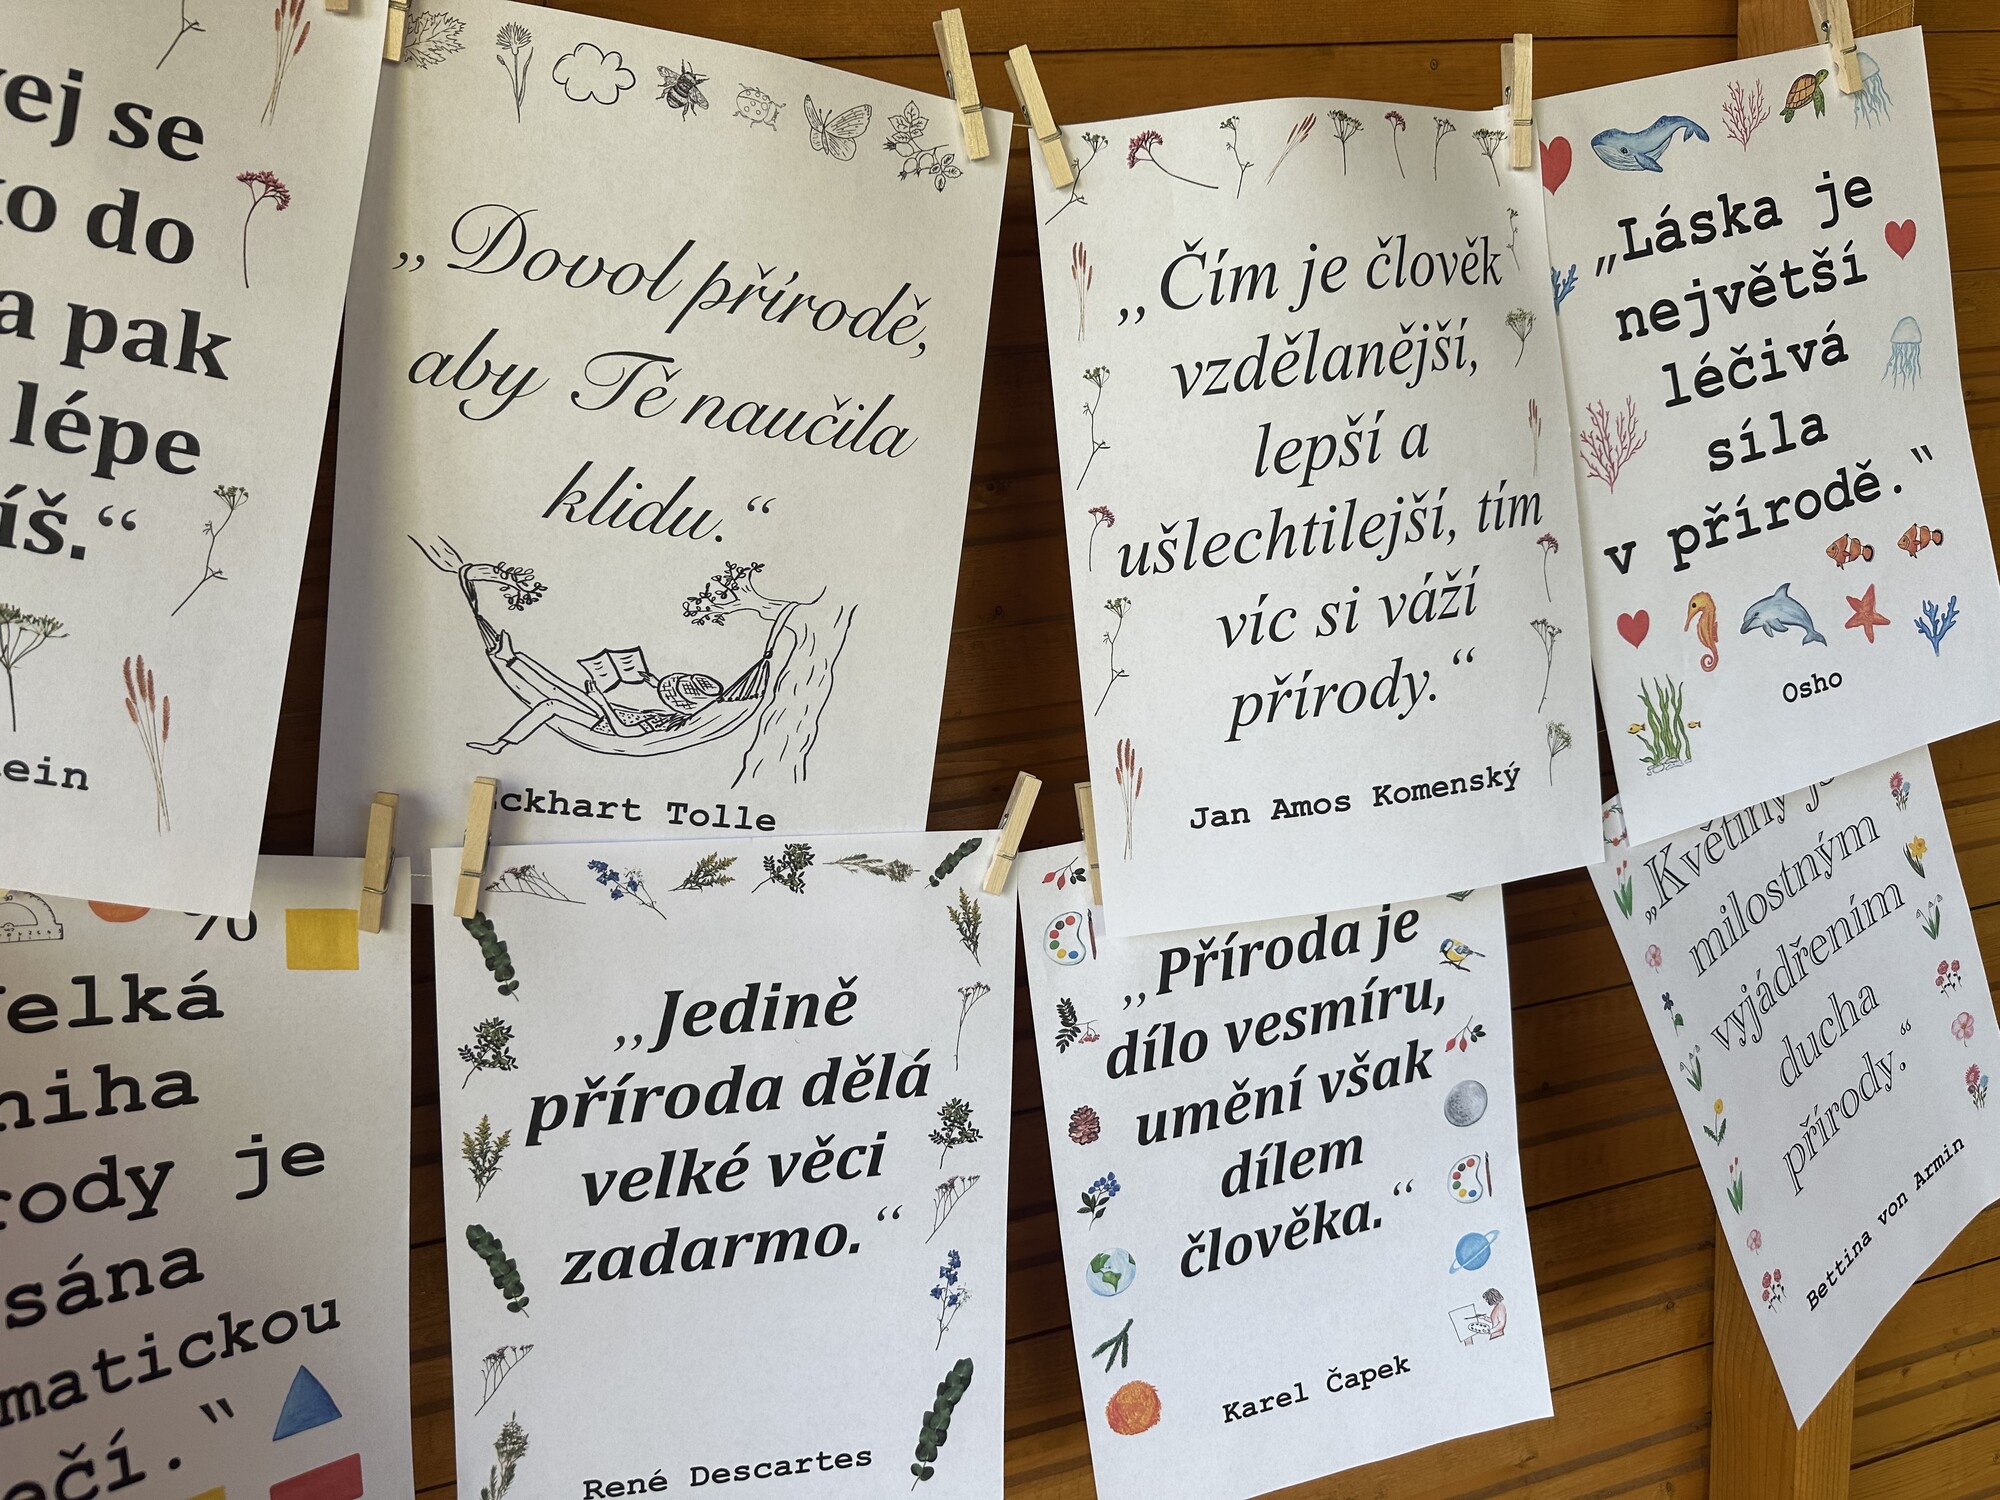 se
do
a pak
lépe
„Dovol přírodě,
aby Tě naučila
klidu.“
Tolle
„Čím je člověk
vzdělanější,
lepší a
ušlechtilejší, tím
víc si váží
přírody.“
Jan Amos Komenský
„Láska je
největší
léčivá
síla
v přírodě.“
Osho
%
je
„Jedině
příroda dělá
velké věci
zadarmo.“
René Descartes
„Příroda je
dílo vesmíru,
umění však
dílem
člověka.“
Karel Čapek
„Květiny
milostným
vyjádřením
ducha
přírody.“
Bettina von Armin